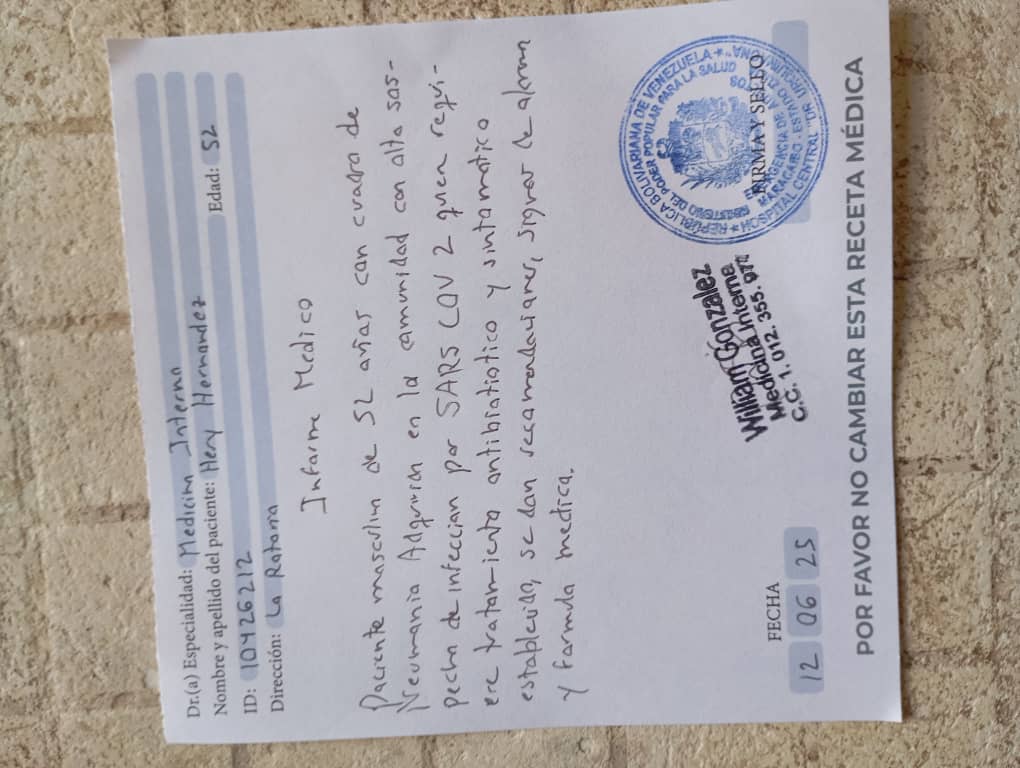 Dr.(a) Especialidad: Medicina Interna
Nombre y apellido del paciente: Hery Hernandez Edad: 52
ID: 10426212
Dirección: La Rotaria
Informe Medico
Paciente masculino de 52 años con cuadro de
Neumonia Adquirida en la comunidad con alta sos-
pecha de infeccion por SARS COV 2 quien requi-
ere tratamiento antibiotico y sintomatico
establecido, se dan recomendaciones, signos de alarma
y formula medica.
William Gonzalez
Medicina Interna
C.C. 1.012.355.
REPÚBLICA BOLIVARIANA DE VENEZUELA
MINISTERIO DEL PODER POPULAR PARA LA SALUD
EMERGENCIA DE
MARACAIBO - ESTADO
HOSPITAL CENTRAL "DR. URQUINAONA"
FIRMA Y SELLO
FECHA
12 06 25
POR FAVOR NO CAMBIAR ESTA RECETA MÉDICA